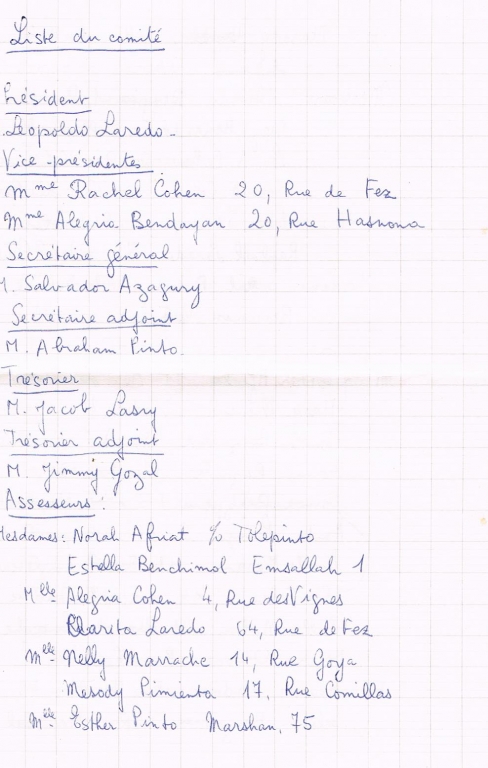 Liste du comité
Président
Léopoldo Laredo -
Vice-présidentes
Mme Rachel Cohen 20, Rue de Fez
Mme Alegria Bendayan 20, Rue Hasnona
Secrétaire général
M. Salvador Azagury
Secrétaire adjoint
M. Abraham Pinto.
Trésorier
M. Jacob Lasry
Trésorier adjoint
M. Jimmy Gozal
Assesseurs :
Mesdames: Norah Afriat % Tolepinto
Estella Benchimol Emsallah 1
Mlle Alegria Cohen 4, Rue des Vignes
Clarita Laredo 64, Rue de Fez
Mlle Nelly Marrache 14, Rue Goya
Mesody Pimienta 17, Rue Comillas
Mlle Esther Pinto Marshan, 75